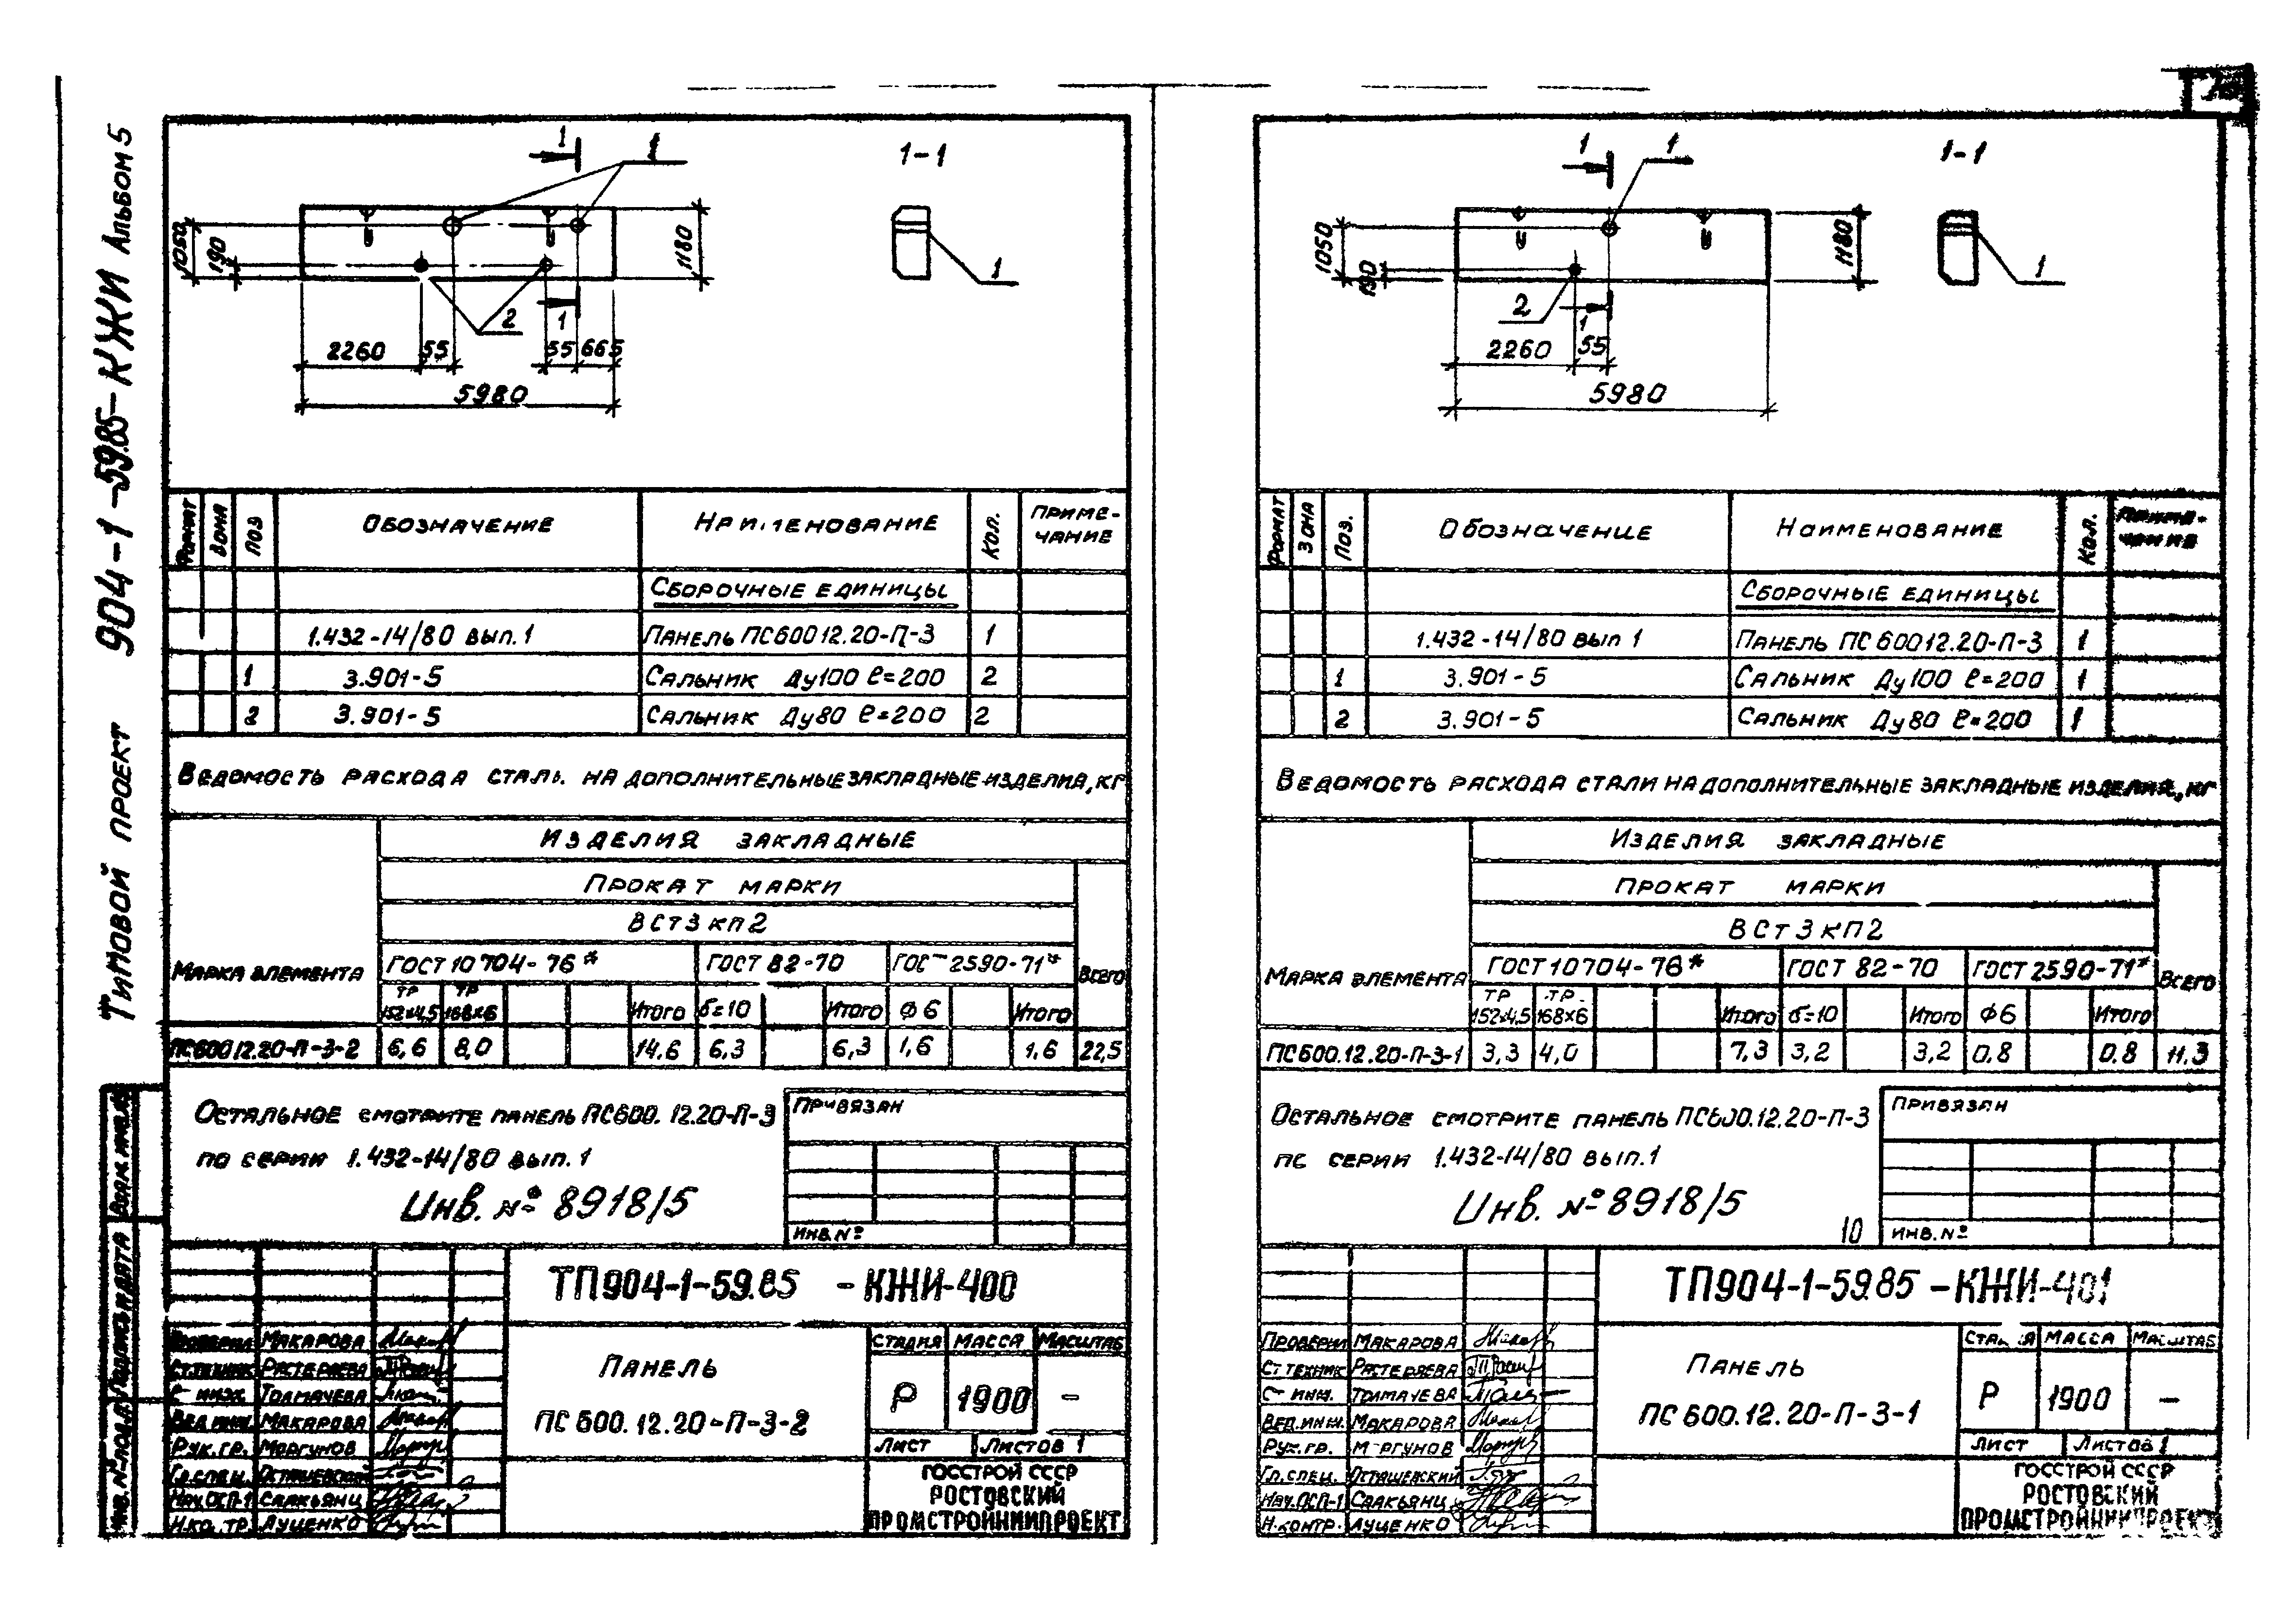 Типовой проект 904-1-59.85-КЖИ Альбом 5
1
1
1-1
1050
190
1180
1
2
1
2260
55
55
665
5980
Формат
Зона
Поз
Обозначение
Наименование
Кол.
Приме-
чание
Сборочные единицы
1.432-14/80 вып.1 Панель ПС60012.20-П-3 1
1 3.901-5 Сальник Ду100 ℓ=200 2
2 3.901-5 Сальник Ду80 ℓ=200 2
Ведомость расхода стали на дополнительные закладные изделия, кг
Марка элемента
Изделия закладные
Прокат марки
ВСт3кп2
ГОСТ 10704-76* ГОСТ 82-70 ГОСТ 2590-71* Всего
Тр 152х4,5 Тр 168х6 Итого δ=10 Итого ϕ6 Итого
ПС600.12.20-П-3-2 6,6 8,0 14,6 6,3 6,3 1,6 1.6 22,5
Остальное смотрите панель ПС600.12.20-П-3
по серии 1.432-14/80 вып.1
Инв. № 8918/5
Привязан
Инв. №
ТП904-1-59.85 -КЖИ-400
Проверил Макарова
Ст.техник Растеряева
Ст инж. Толмачева
Вед.инж. Макарова
Рук.гр. Моргунов
Гл.спец. Осташевский
Нач.ОСП-1 Саакьянц
Н.контр. Луценко
Панель
ПС600.12.20-П-3-2
Стадия Масса Масштаб
Р 1900 –
Лист Листов 1
ГОССТРОЙ СССР
РОСТОВСКИЙ
ПРОМСТРОЙНИИПРОЕКТ
1
1
1-1
1050
190
1180
1
2
1
2260
55
5980
Формат
Зона
Поз.
Обозначение
Наименование
Кол.
Приме-
чание
Сборочные единицы
1.432-14/80 вып 1 Панель ПС60012.20-П-3 1
1 3.901-5 Сальник Ду100 ℓ=200 1
2 3.901-5 Сальник Ду80 ℓ=200 1
Ведомость расхода стали на дополнительные закладные изделия, кг
Марка элемента
Изделия закладные
Прокат марки
ВСт3кп2
ГОСТ 10704-76* ГОСТ 82-70 ГОСТ 2590-71* Всего
Тр 152х4,5 Тр 168х6 Итого δ=10 Итого ϕ6 Итого
ПС600.12.20-П-3-1 3,3 4,0 7,3 3,2 3,2 0.8 0.8 11.3
Остальное смотрите панель ПС600.12.20-П-3
по серии 1.432-14/80 вып.1
Инв. № 8918/5
10
Привязан
Инв. №
ТП904-1-59.85-КЖИ-401
Проверил Макарова
Ст техник Растеряева
Ст инж. Толмачева
Вед.инж. Макарова
Рук.гр. Моргунов
Гл.спец. Осташевский
Нач.ОСП-1 Саакьянц
Н.контр. Луценко
Панель
ПС600.12.20-П-3-1
Стадия Масса Масштаб
Р 1900 –
Лист Листов 1
ГОССТРОЙ СССР
РОСТОВСКИЙ
ПРОМСТРОЙНИИПРОЕКТ
Инв.№ подл. Подпись и дата Взам.инв.№